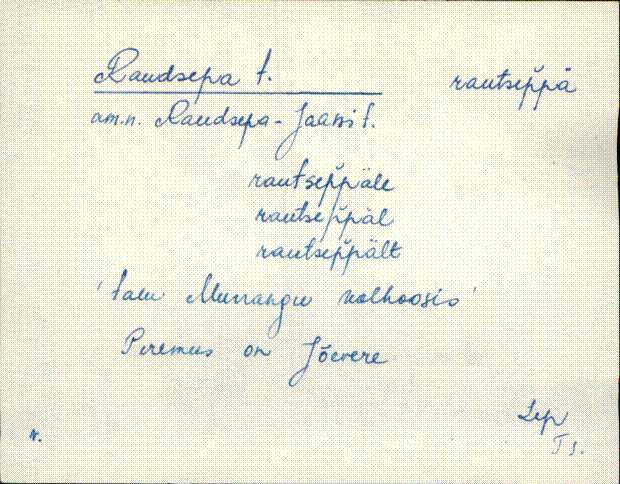 Raudsepa t. rautsep̆p̆ä
am.n. Raudsepa-Jaani t.
rautsep̆p̆äle
rautsep̆p̆äl
rautsep̆p̆ält
'talu Murrangu kolhoosis'
Peremees on Jõevere
Lep
T s.
n.